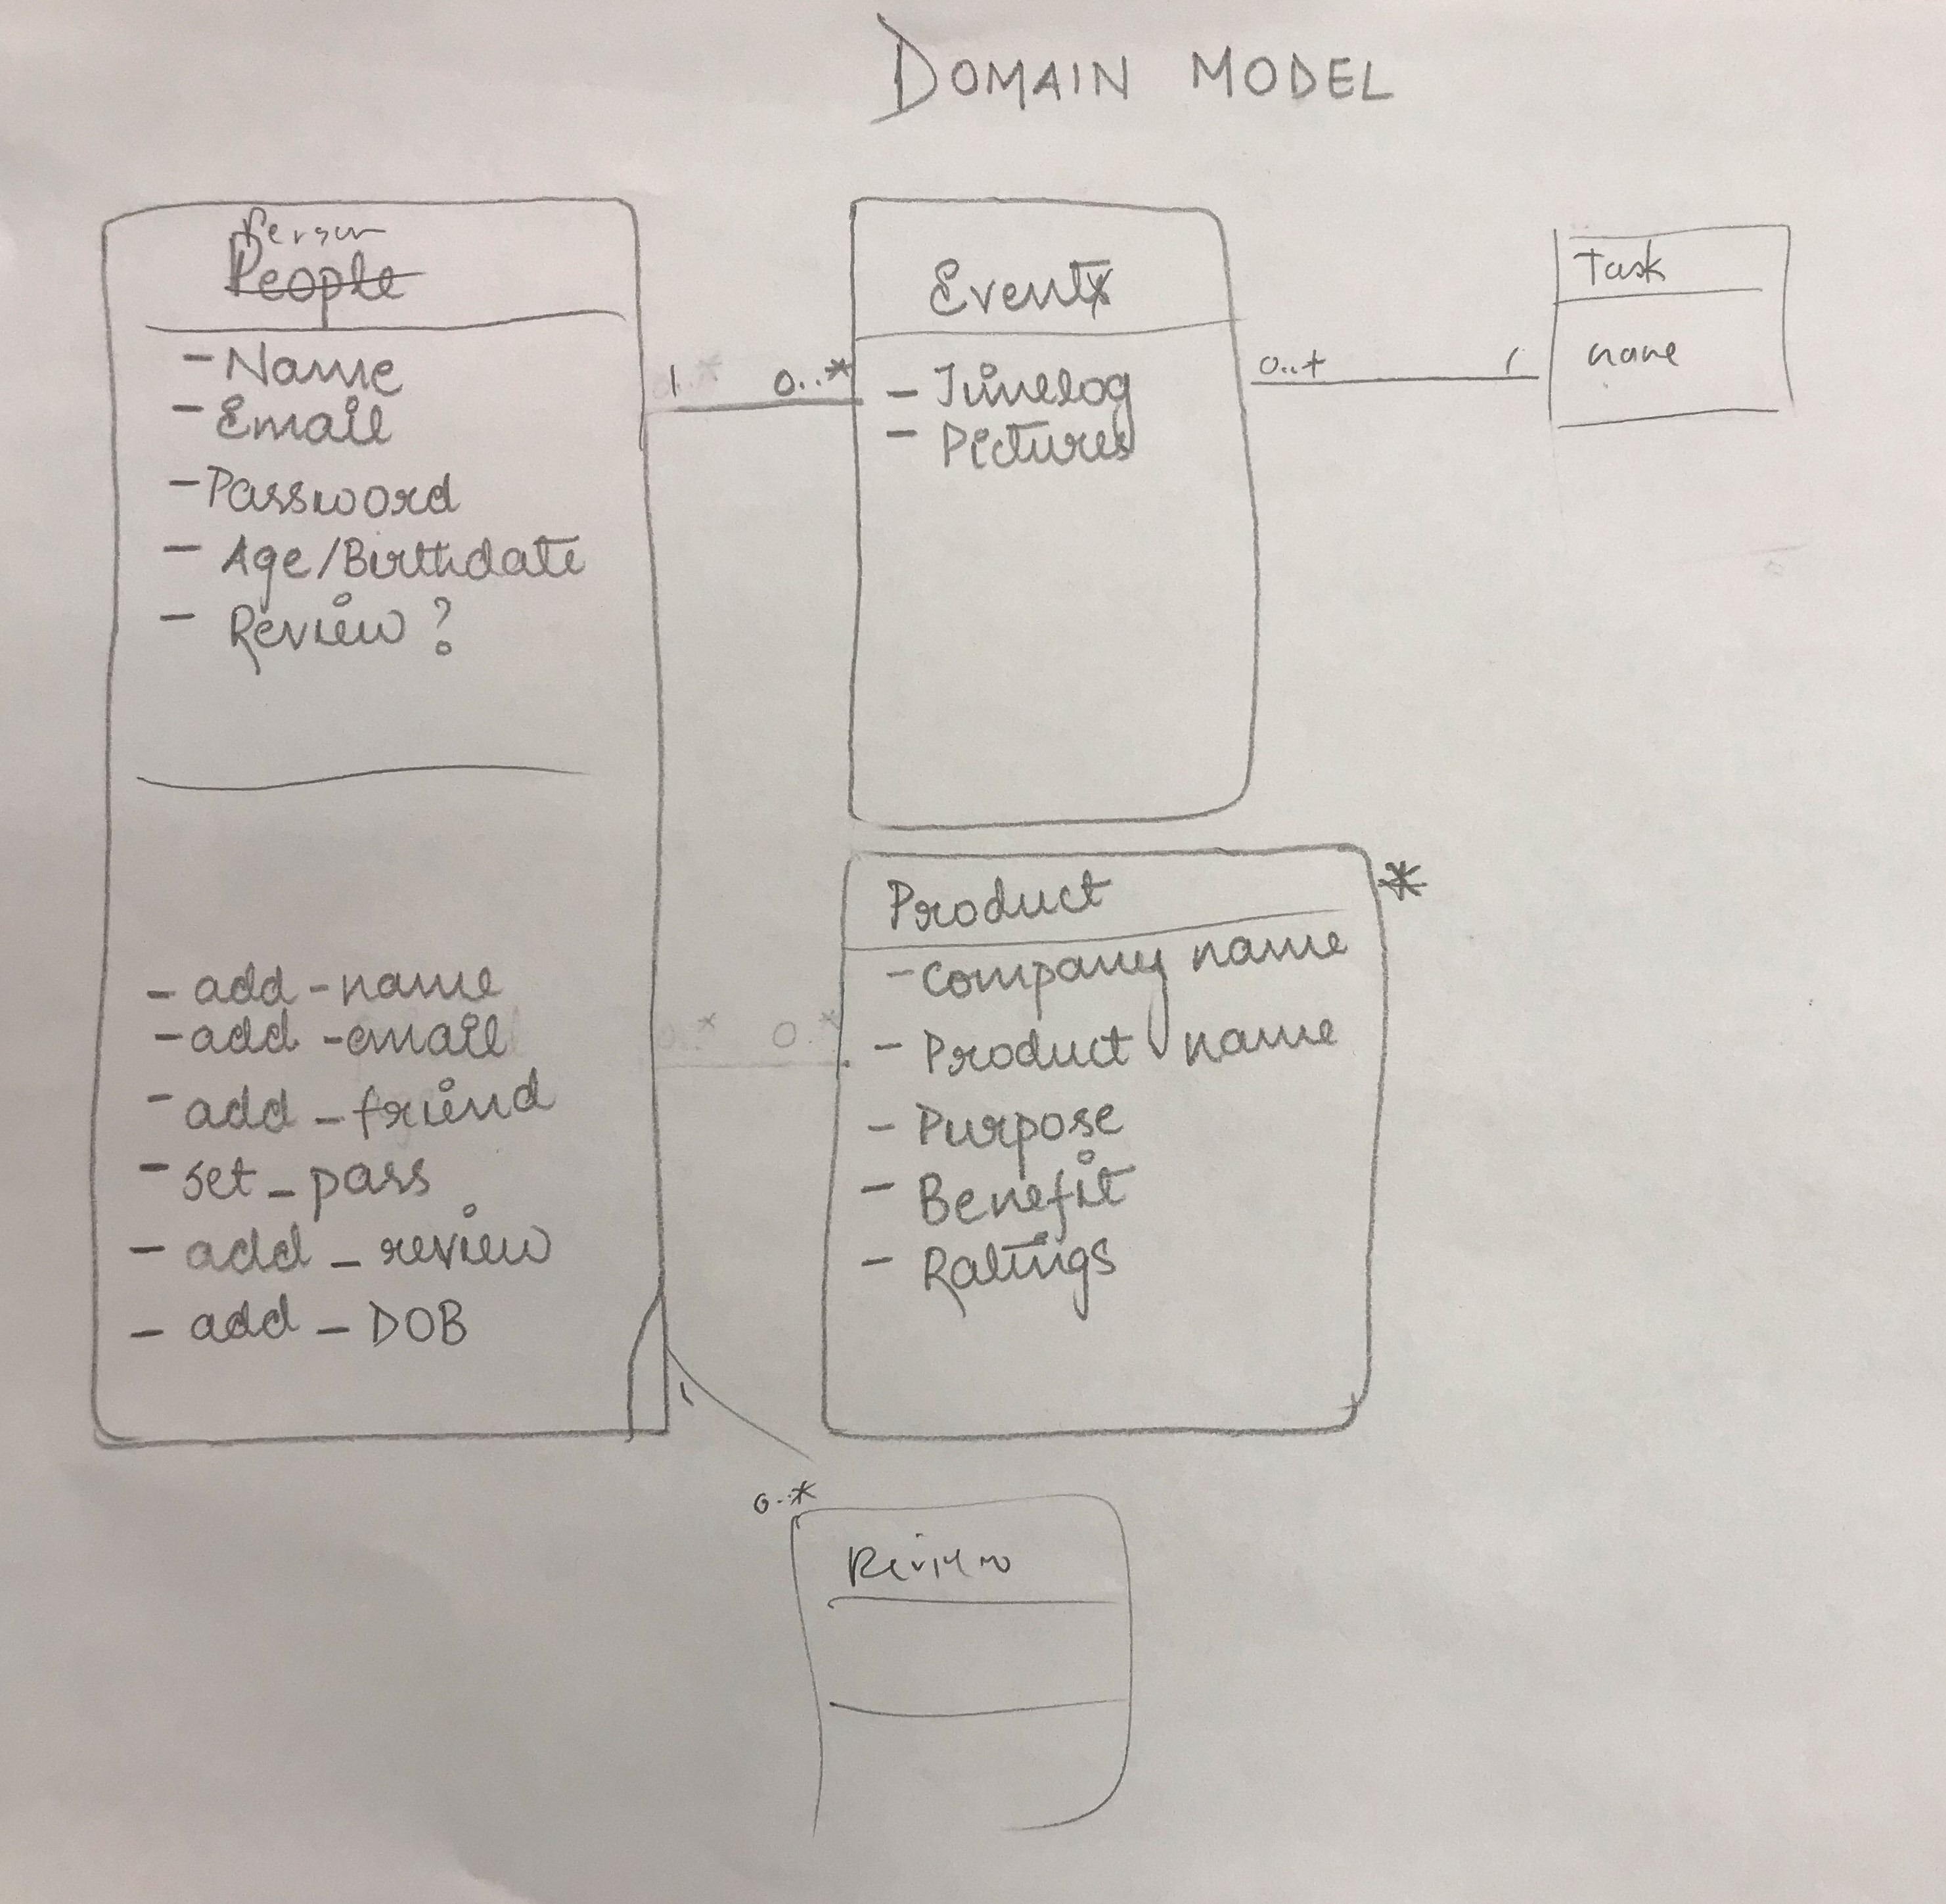 DOMAIN MODEL
Person
People
- Name
- Email
- Password
- Age/Birthdate
- Review ?
- add-name
- add-email
- add_friend
- set_pass
- add_review
- add_DOB
1
0..*
Events
- Timelog
- Pictures
0..*
1
Task
name
0..* 0..*
Product
*
- Company name
- Product name
- Purpose
- Benefit
- Ratings
1
0..*
Review